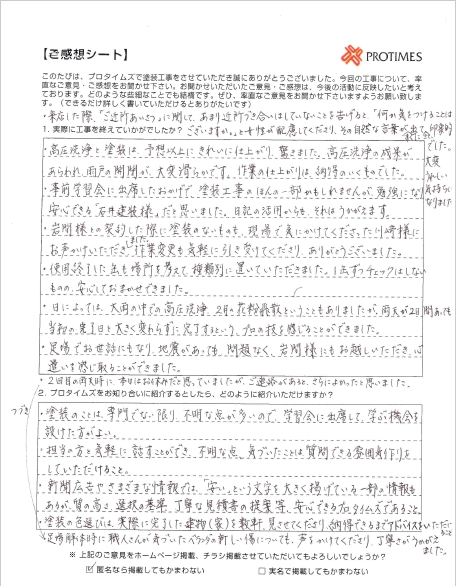 【ご感想シート】
PROTIMES
このたびは、プロタイムズで塗装工事をさせていただき誠にありがとうございました。今回の工事について、率
直なご意見・ご感想をお聞かせ下さい。お聞かせいただいたご意見・ご感想は、今後の活動に反映したいと考え
ております。どのような些細なことでも結構です。ぜひ、率直なご意見をお聞かせ下さいますようお願い致しま
す。（できるだけ詳しく書いていただけるとありがたいです）
・来店した際、「ご近所あいさつ」に関して、あまり近所づき合いはしていないことを告げると、「何か気をつけることは
1. 実際に工事を終えていかがでしたか？
ございますか。」と女性が配慮してくださり、その自然な言葉が出て、印象的
でした。
大変
うれしい
気持ちに
なりました
・高圧洗浄と塗装は、予想以上にきれいに仕上がり、驚きました。高圧洗浄の成果が
あらわれ、雨戸の開閉が、大変滑らかです。作業の仕上がりは、納得のいくものでした。
・事前学習会に出席したおかげで、塗装工事のほんの一部かもしれませんが、勉強になり
安心できる「石井建装様」だと思いました。日記の活用からも、それはうかがえます。
・岩間様との契約した際に塗装のないものも、現場で気にかけてくださった川崎様に
お声がけいただきました。作業変更も気軽に引き受けてくださり、ありがとうございました。
・使用終了した出も場所を考えて種類別に置いていただきました。1点ずつチェックはしない
ものの、安心しておまかせできました。
・日によっては、大雨の中での高圧洗浄、2月の花粉飛散ということもありましたが、雨天が2日間あっても
当初の完了日と大きく変わらずに完了するという、プロの技を感じることができました。
・足場でお世話にもなり、地震があっても、問題なく、岩間様にもお越しいただき、心
遣いも感じ取ることができました。
・2回目の雨天時に、本日はお休みだと思っていましたが、ご連絡があると、さらによかったと思いました。
2. プロタイムズをお知り合いに紹介するとしたら、どのように紹介いただけますか？
つづき
・塗装のことは、専門でない限り、不明な点が多いので、学習会に出席して、学ぶ機会を
設けた方がよい。
・担当の方と気軽に話すことができ、不明な点、気づいたことは質問できる雰囲気作りを
していただけること。
・新聞広告やさまざまな情報では、「安い」という文字を大きく掲げている一部の情報も
あるが、質の高さ、選択の基準、丁寧な見積書の提案等、安心できるプロタイムズであること。
・塗装の色選びは、実際に完了した建物(家)を数軒、見させてくださり、納得できるまでアドバイスをいただけること
足場解体時に職人さんが気づいたベランダの新しい傷についても、声をかけてくださり、丁寧さがうかがえました。
※ 上記のご意見をホームページ掲載、チラシ掲載させていただいてもよろしいでしょうか？
☑ 匿名なら掲載してもかまわない　□ 実名で掲載してもかまわない